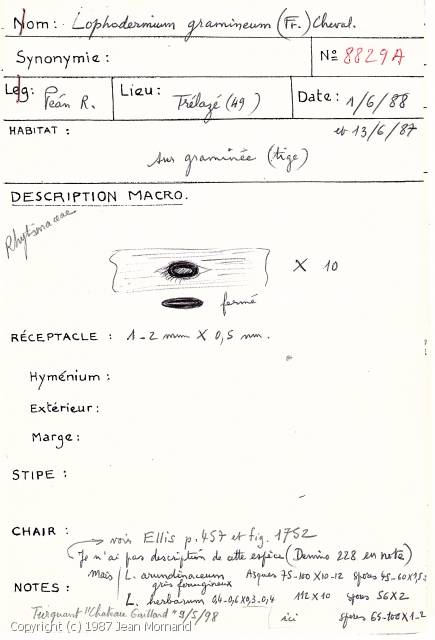 Nom : Lophodermium gramineum (Fr.) Cheval.
Synonymie : Nº 8829A
Leg: Péan R. Lieu : Trélazé (49) Date : 1/6/88
HABITAT : et 13/6/87
sur graminée (tige)
DESCRIPTION MACRO.
Rhytismaceae
X 10
fermé
RÉCEPTACLE : 1-2 mm X 0,5 mm.
Hyménium :
Extérieur :
Marge :
STIPE :
CHAIR : → vois Ellis p.457 et fig. 1752
Je n'ai pas description de cette espèce (Dennis 228 en note)
Mais L. arundinaceum Asques 75-100 X 10-12 spores 45-60 X 1,5
gris ferrugineux
NOTES : L. herbarum 0,4-0,6 X 0,3-0,4 112 X 10 spores 56 X 2
"Chateau Gaillard" 9/5/98 ici spores 65-100 X 1-2
Copyright (c) 1987 Jean Mornand